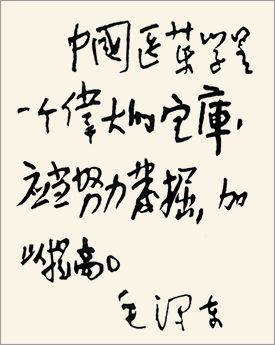 中國医藥学是
一个偉大的宝庫，
应当努力發掘，加
以提高。
毛泽东